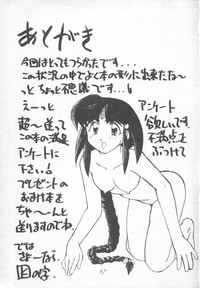 あとがき
今回はとってもつらかたです…
この状況の中でよく本の形に出来たな～
っと ちょっと不思議です…。
えーっと
感想送って
この本の満足
アンケートに
下さい。
プレゼントの
おまけ本を
ちゃ～んと
送りますのでね
では
さよーなら
アンケート
欲しいです。
不満点を
ぶつけて